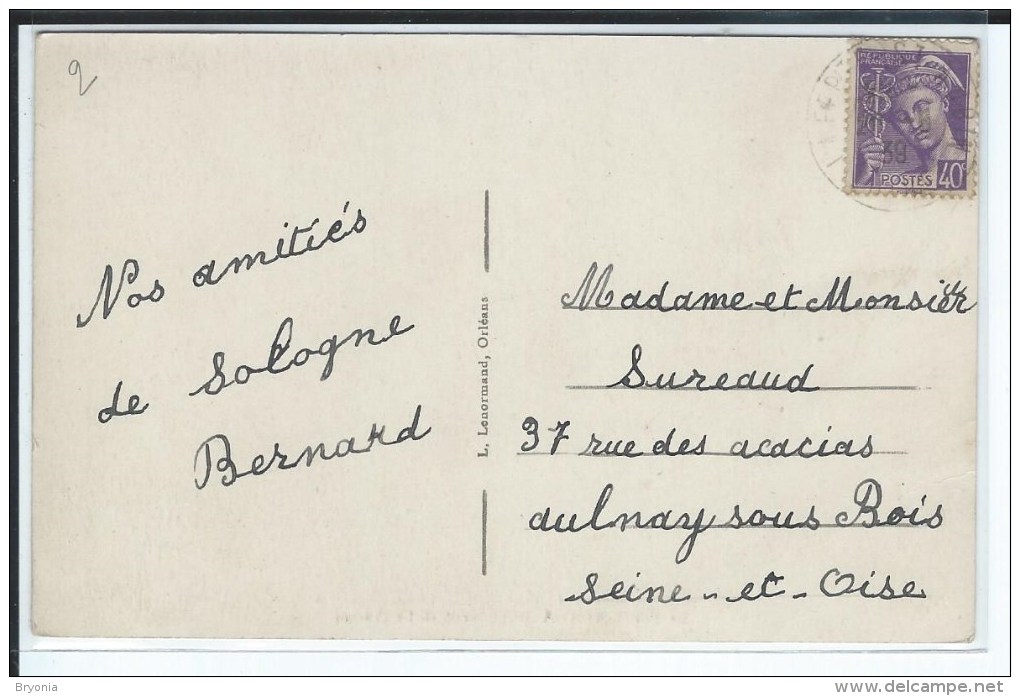 2
RÉPUBLIQUE
FRANÇAISE
39
POSTES 40c
Nos amitiés
de Sologne
Bernard
L. Lenormand, Orléans
Madame et Monsieur
Sureaud
37 rue des acacias
aulnay sous Bois
Seine-et-Oise
Bryonia
www.delcampe.net